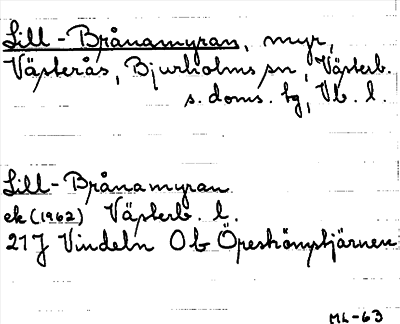 Lill-Brånamyran, myr,
Västerås, Bjurholms sn, Västerb.
s. doms. hg, Vb. l.
Lill-Brånamyran
ek (1962) Västerb. l.
21J Vindeln Ob Öreströmstjärnen
ML-63